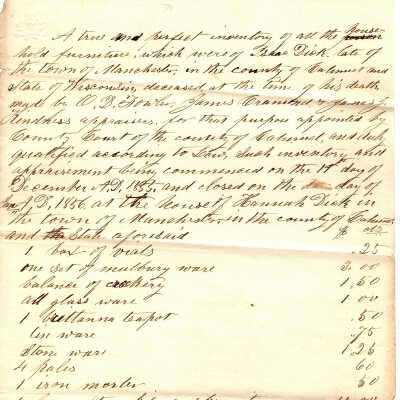 A true and perfect inventory of all the house
hold furniture, which were of Isaac Dick, late of
the town of Manchester, in the county of Calumet and
State of Wisconsin, deceased at the time of his death
made by O. D. Fowler, James Cramond & James J.
appraisers, for that purpose appointed by
County Court of the county of Calumet, and duly
qualified according to Law, Such inventory and
appraisement being commenced on the 1st day of
December A.D. 1855, and closed on the day of
A.D. 1856, at the house of Hannah Dick in
the town of Manchester, in the county of Calumet
and the State aforesaid $ cts
1 box of vials .25
one set of mulbury ware 3.00
balance of crockery 1.50
all glass ware 1 00
1 brittanna teapot .50
tin ware .75
Stone ware 1.25
4 pales 60
1 iron morter 50